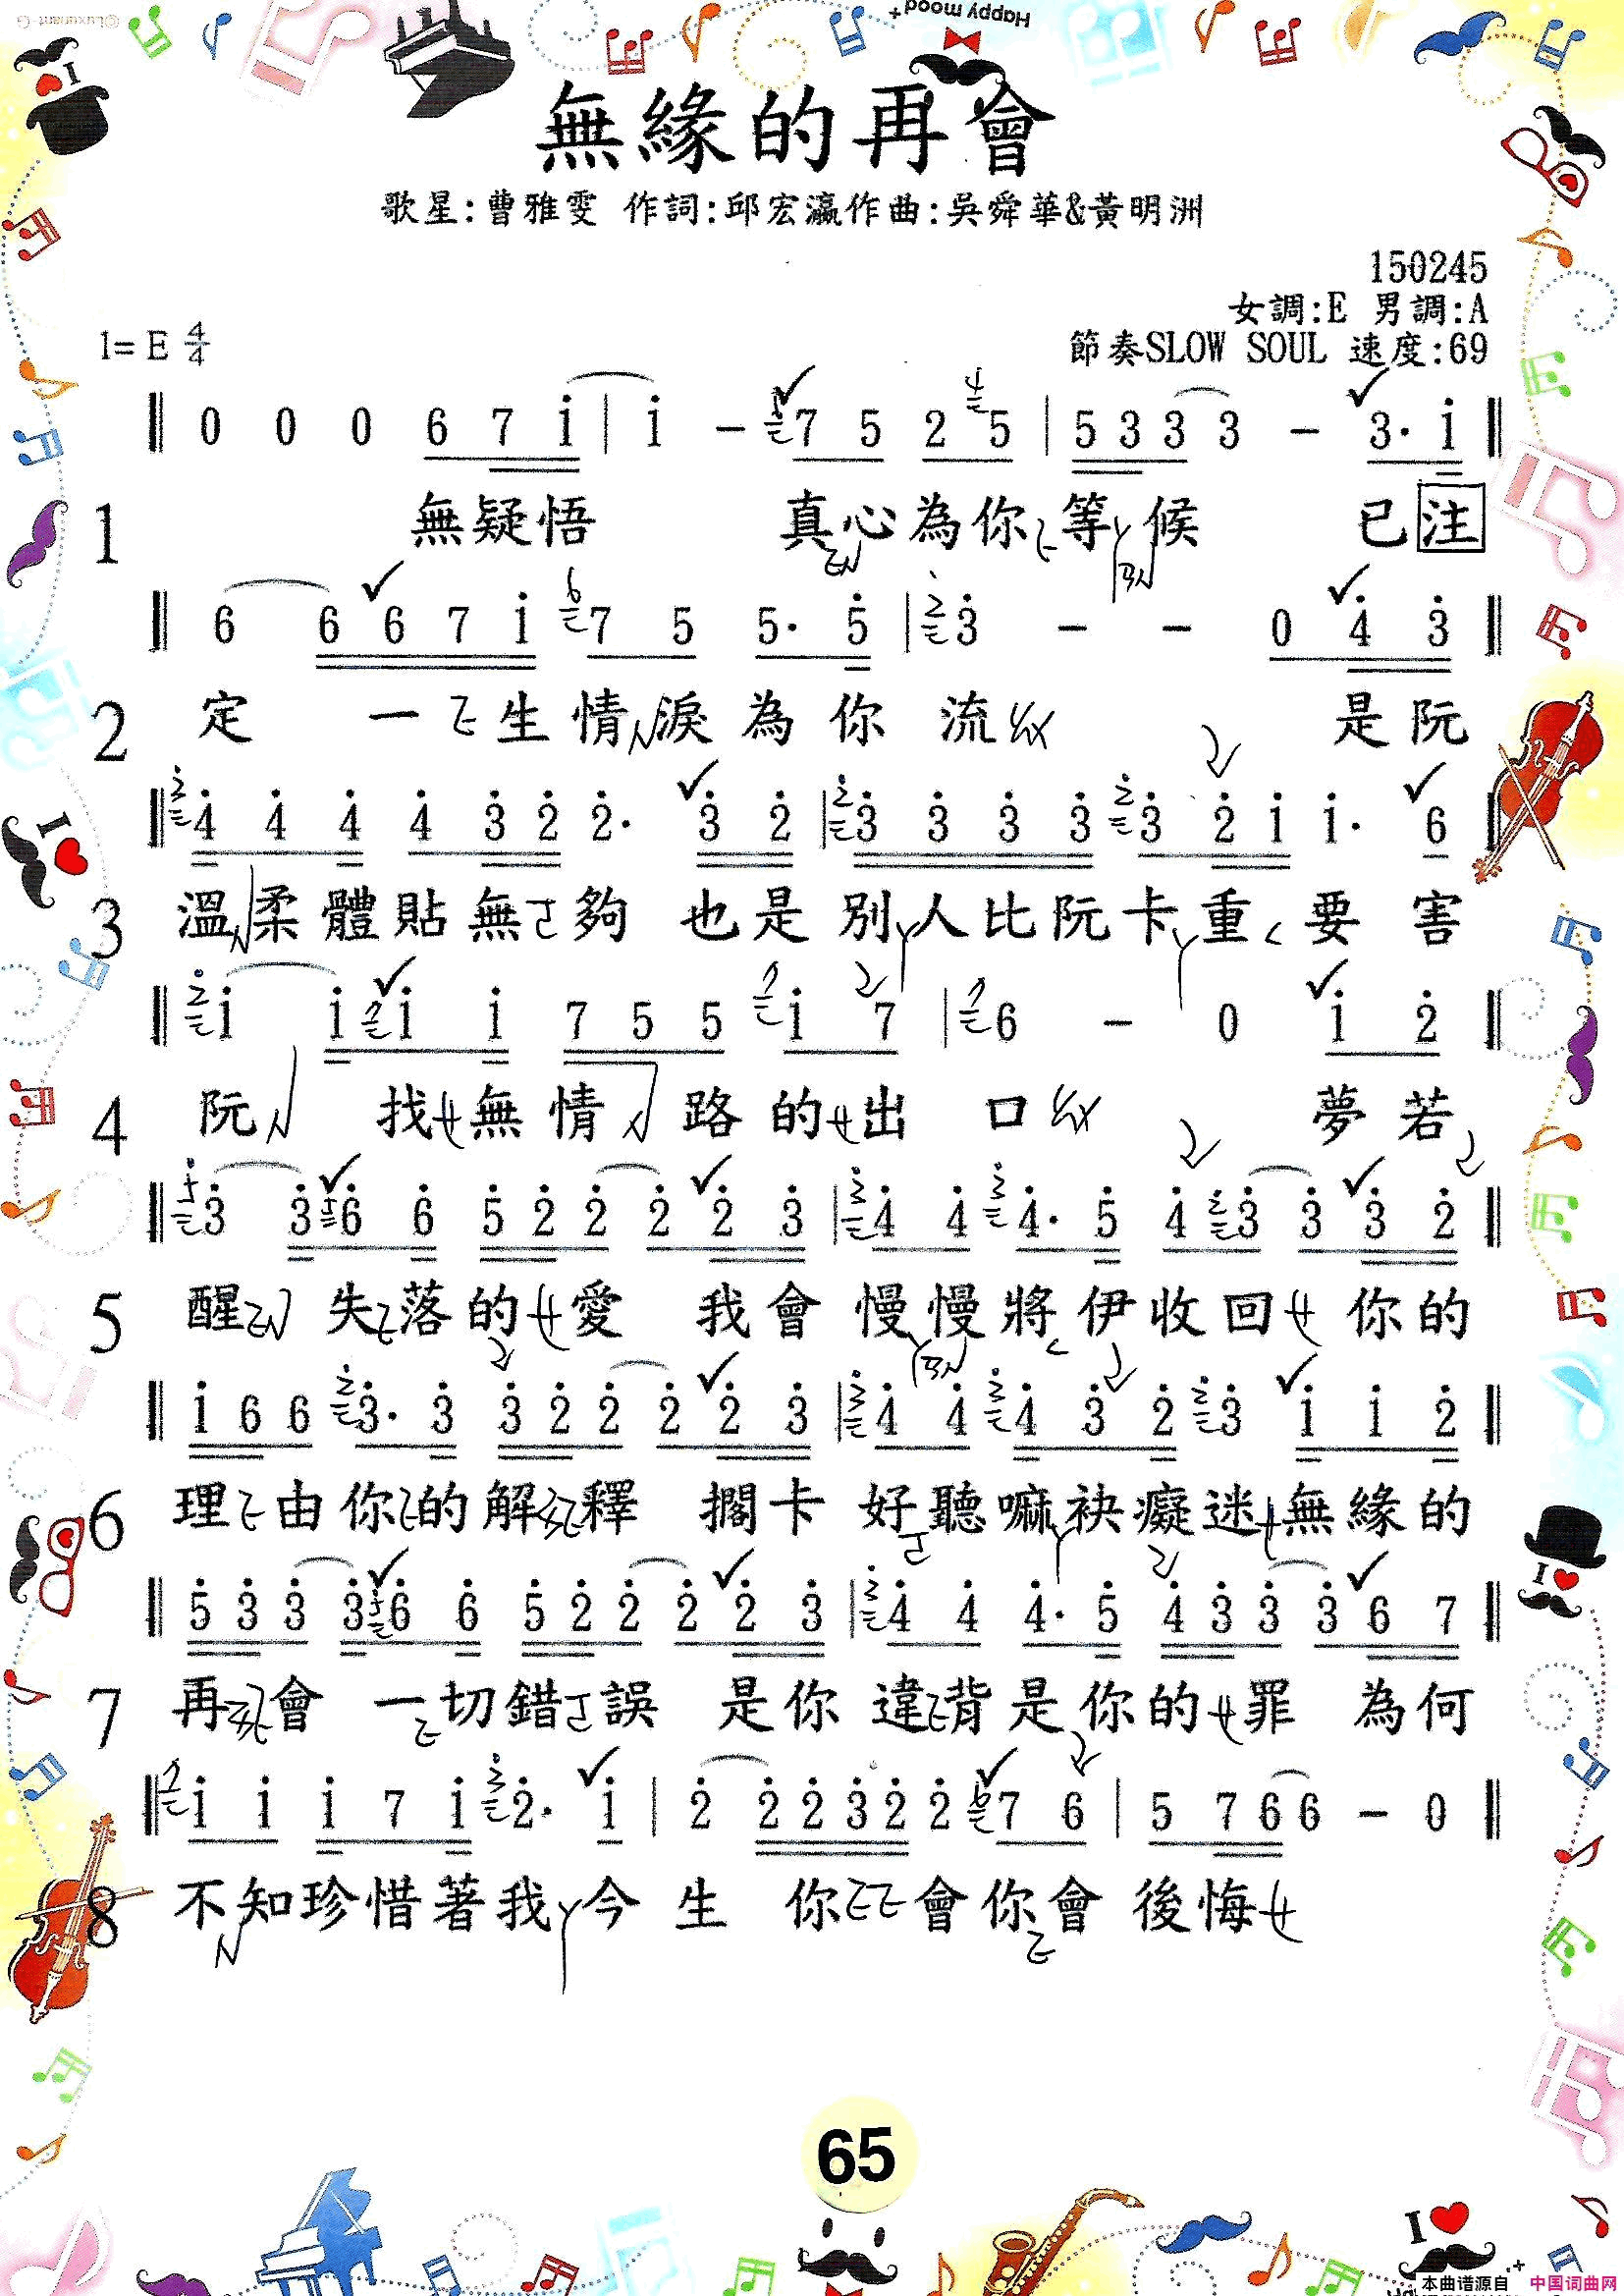 Happy mood+
無緣的再會
歌星:曹雅雯 作詞:邱宏瀛作曲:吳舜華&黃明洲
150245
女調:E 男調:A
1= E 4/4
節奏SLOW SOUL 速度:69
0 0 0 6 7 i | i - 7 5 2 5 | 5 3 3 3 - 3· i
1 無疑悟 真心為你等候 已注
6 6 6 7 i 7 5 5· 5 | 3 - - 0 4 3
2 定 一生情淚為你流 是阮
4 4 4 4 3 2 2· 3 2 | 3 3 3 3 3 2 i i· 6
3 溫柔體貼無夠 也是別人比阮卡重要 害
i i i i 7 5 5 i 7 | 6 - 0 i 2
4 阮 找無情路的出口 夢若
3 3 6 6 5 2 2 2 2 3 | 4 4 4· 5 4 3 3 3 2
5 醒 失落的愛 我會慢慢將伊收回 你的
i 6 6 3· 3 3 2 2 2 2 3 | 4 4 4 3 2 3 i i 2
6 理由你的解釋 擱卡好聽嘛袂癡迷無緣的
5 3 3 3 6 6 5 2 2 2 2 3 | 4 4 4· 5 4 3 3 3 6 7
7 再會 一切錯誤 是你違背是你的罪 為何
i i i 7 i 2· i | 2 2 2 3 2 2 7 6 | 5 7 6 6 - 0
8 不知珍惜著我今生 你會你會後悔
65
I
I
I
I
本曲谱源自 中国词曲网